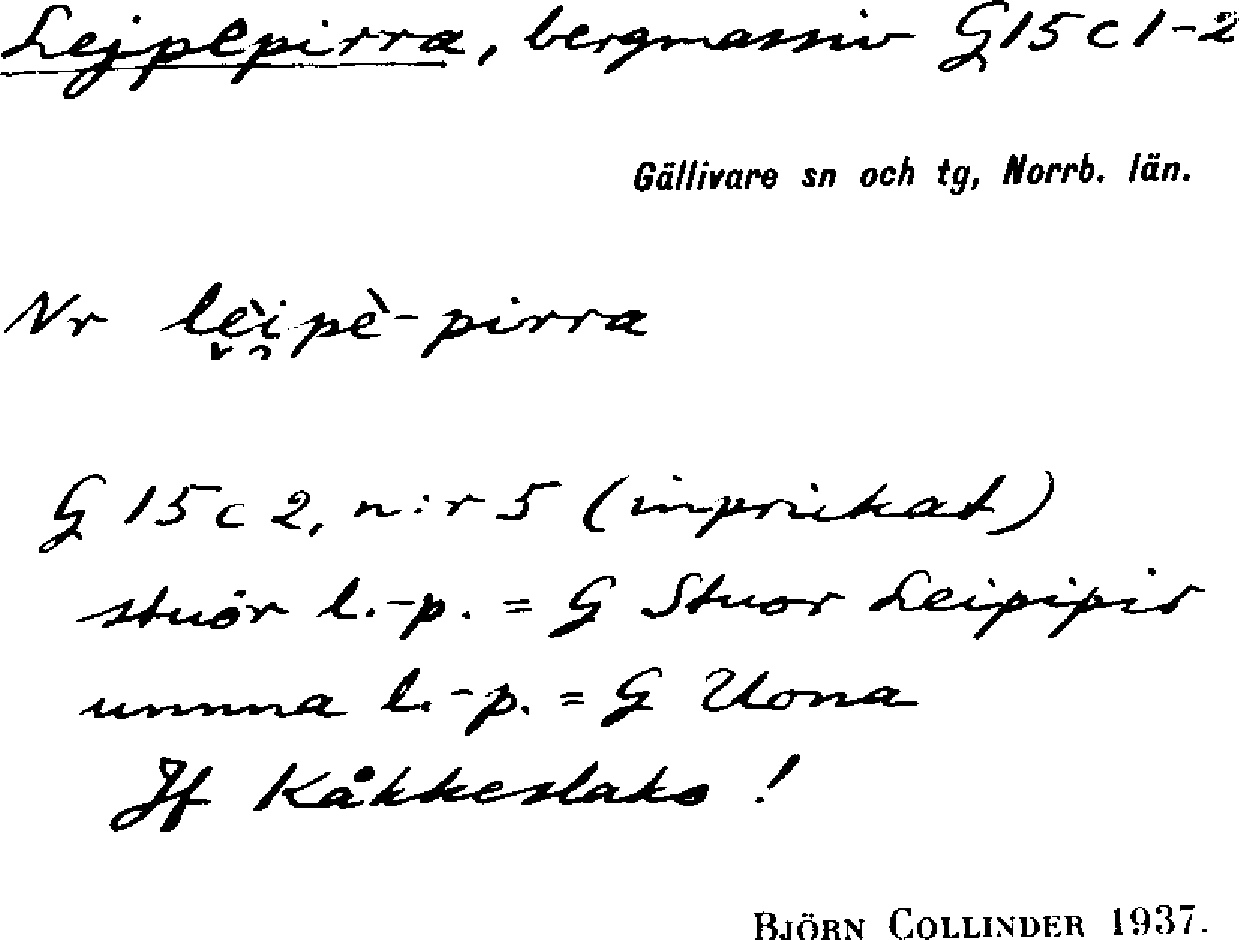 Lejpepirra, bergmassiv G15c1-2
Gällivare sn och tg, Norrb. län.
Nr lèi̯pè-pirra
G 15 c 2, n:r 5 (inprickat)
stuòr l.-p. = G Stuor Leipipir
unnna l.-p. = G Uona
Jf Kåkkeslako !
BJÖRN COLLINDER 1937.